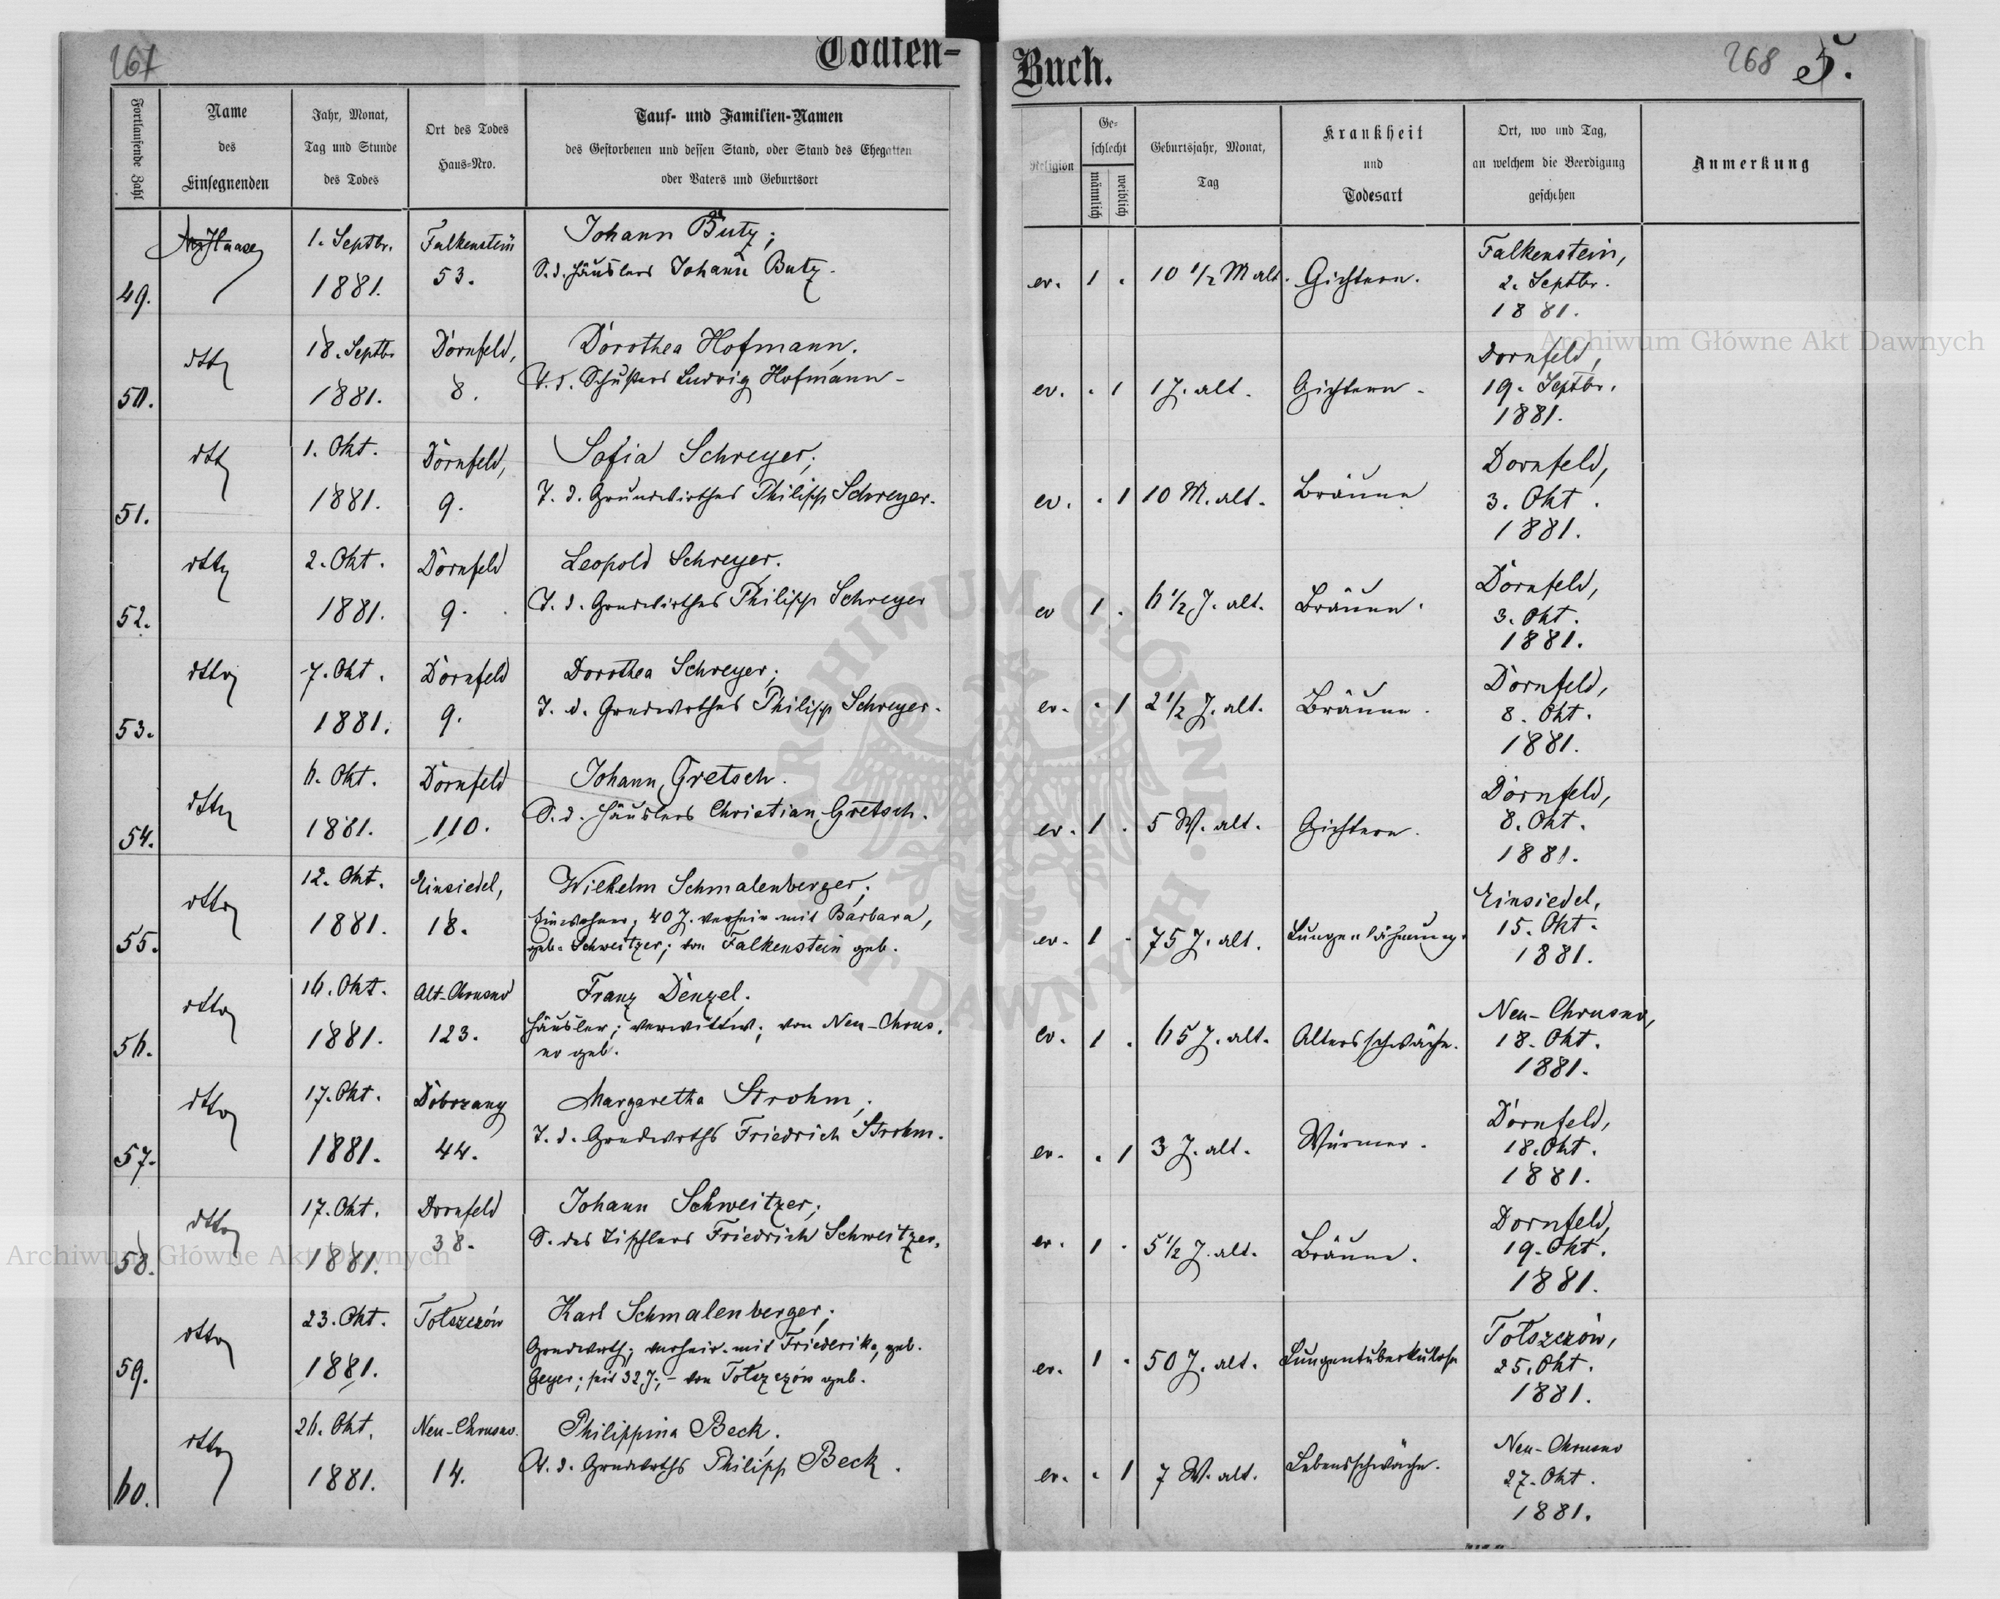 267
Todten-
Buch.
268 5.
Fortlaufende Zahl
Name
des
Einsegnenden
Jahr, Monat,
Tag und Stunde
des Todes
Ort des Todes
Haus-Nro.
Tauf- und Familien-Namen
des Gestorbenen und dessen Stand, oder Stand des Ehegatten
oder Vaters und Geburtsort
Religion
Ge-
schlecht
männlich
weiblich
Geburtsjahr, Monat,
Tag
Krankheit
und
Todesart
Ort, wo und Tag,
an welchem die Beerdigung
geschehen
Anmerkung
49.
Haase
1. Septbr.
1881.
Falkenstein
53.
Johann Butz;
S. d. Häuslers Johann Butz.
ev. 1 .
10 1/2 M alt.
Gichtern.
Falkenstein,
2. Septbr.
1881.
50.
dtto
18. Septbr
1881.
Dornfeld,
8.
Dorothea Hofmann,
T. d. Schusters Ludwig Hofmann-
ev. . 1
1 J. alt.
Gichtern -
Dornfeld,
19. Septbr.
1881.
51.
dtto
1. Okt.
1881.
Dornfeld,
9.
Sofia Schreyer;
T. d. Grundwirthes Philipp Schreyer.
ev. . 1
10 M. alt.
Bräune
Dornfeld,
3. Okt.
1881.
52.
dtto
2. Okt.
1881.
Dornfeld
9.
Leopold Schreyer.
T. d. Grndwirthes Philipp Schreyer
ev 1 .
6 1/2 J. alt.
Bräune.
Dornfeld,
3. Okt.
1881.
53.
dtto
7. Okt.
1881.
Dornfeld
9.
Dorothea Schreyer;
T. d. Grndwrthes Philipp Schreyer.
ev. . 1
2 1/2 J. alt.
Bräune.
Dornfeld,
8. Okt.
1881.
54.
dtto
6. Okt.
1881.
Dornfeld
110.
Johann Gretsch.
S. d. Häuslers Christian Gretsch.
ev. 1 .
5 W. alt.
Gichtern.
Dornfeld,
8. Okt.
1881.
55.
dtto
12. Okt.
1881.
Einsiedel,
18.
Wilhelm Schmalenberger;
Einwohner, 40 J. verheir. mit Barbara,
geb. Schweitzer; von Falkenstein geb.
ev. 1 .
75 J. alt.
Lungenlähmung.
Einsiedel,
15. Okt.
1881.
56.
dtto
16. Okt.
1881.
Alt-Chrusno
123.
Franz Denzel;
Häusler; verwittw.; von Neu-Chrus-
no geb.
ev. 1 .
65 J. alt.
Altersschwäche.
Neu-Chrusno,
18. Okt.
1881.
57.
dtto
17. Okt.
1881.
Dobrzany
44.
Margaretha Strohm;
T. d. Grndwrths Friedrich Strohm.
ev. . 1
3 J. alt.
Würmer.
Dornfeld,
18. Okt.
1881.
58.
dtto
17. Okt.
1881.
Dornfeld
38.
Johann Schweitzer;
S. des Tischlers Friedrich Schweitzer.
ev. 1 .
5 1/2 J. alt.
Bräune.
Dornfeld,
19. Okt.
1881.
59.
dtto
23. Okt.
1881.
Tołszczów
Karl Schmalenberger;
Grndwrth; verheir. mit Friederika, geb.
Geyer; seit 32 J.; - von Tołszczów geb.
ev. 1 .
50 J. alt.
Lungentuberkulose
Tołszczów,
25. Okt.
1881.
60.
dtto
26. Okt.
1881.
Neu-Chrusno.
14.
Philippina Beck.
T. d. Grndwrths Philipp Beck.
ev. . 1
7 W. alt.
Lebensschwäche.
Neu-Chrusno
27. Okt.
1881.
Archiwum Główne Akt Dawnych
Archiwum Główne Akt Dawnych
ARCHIWUM GŁÓWNE AKT DAWNYCH